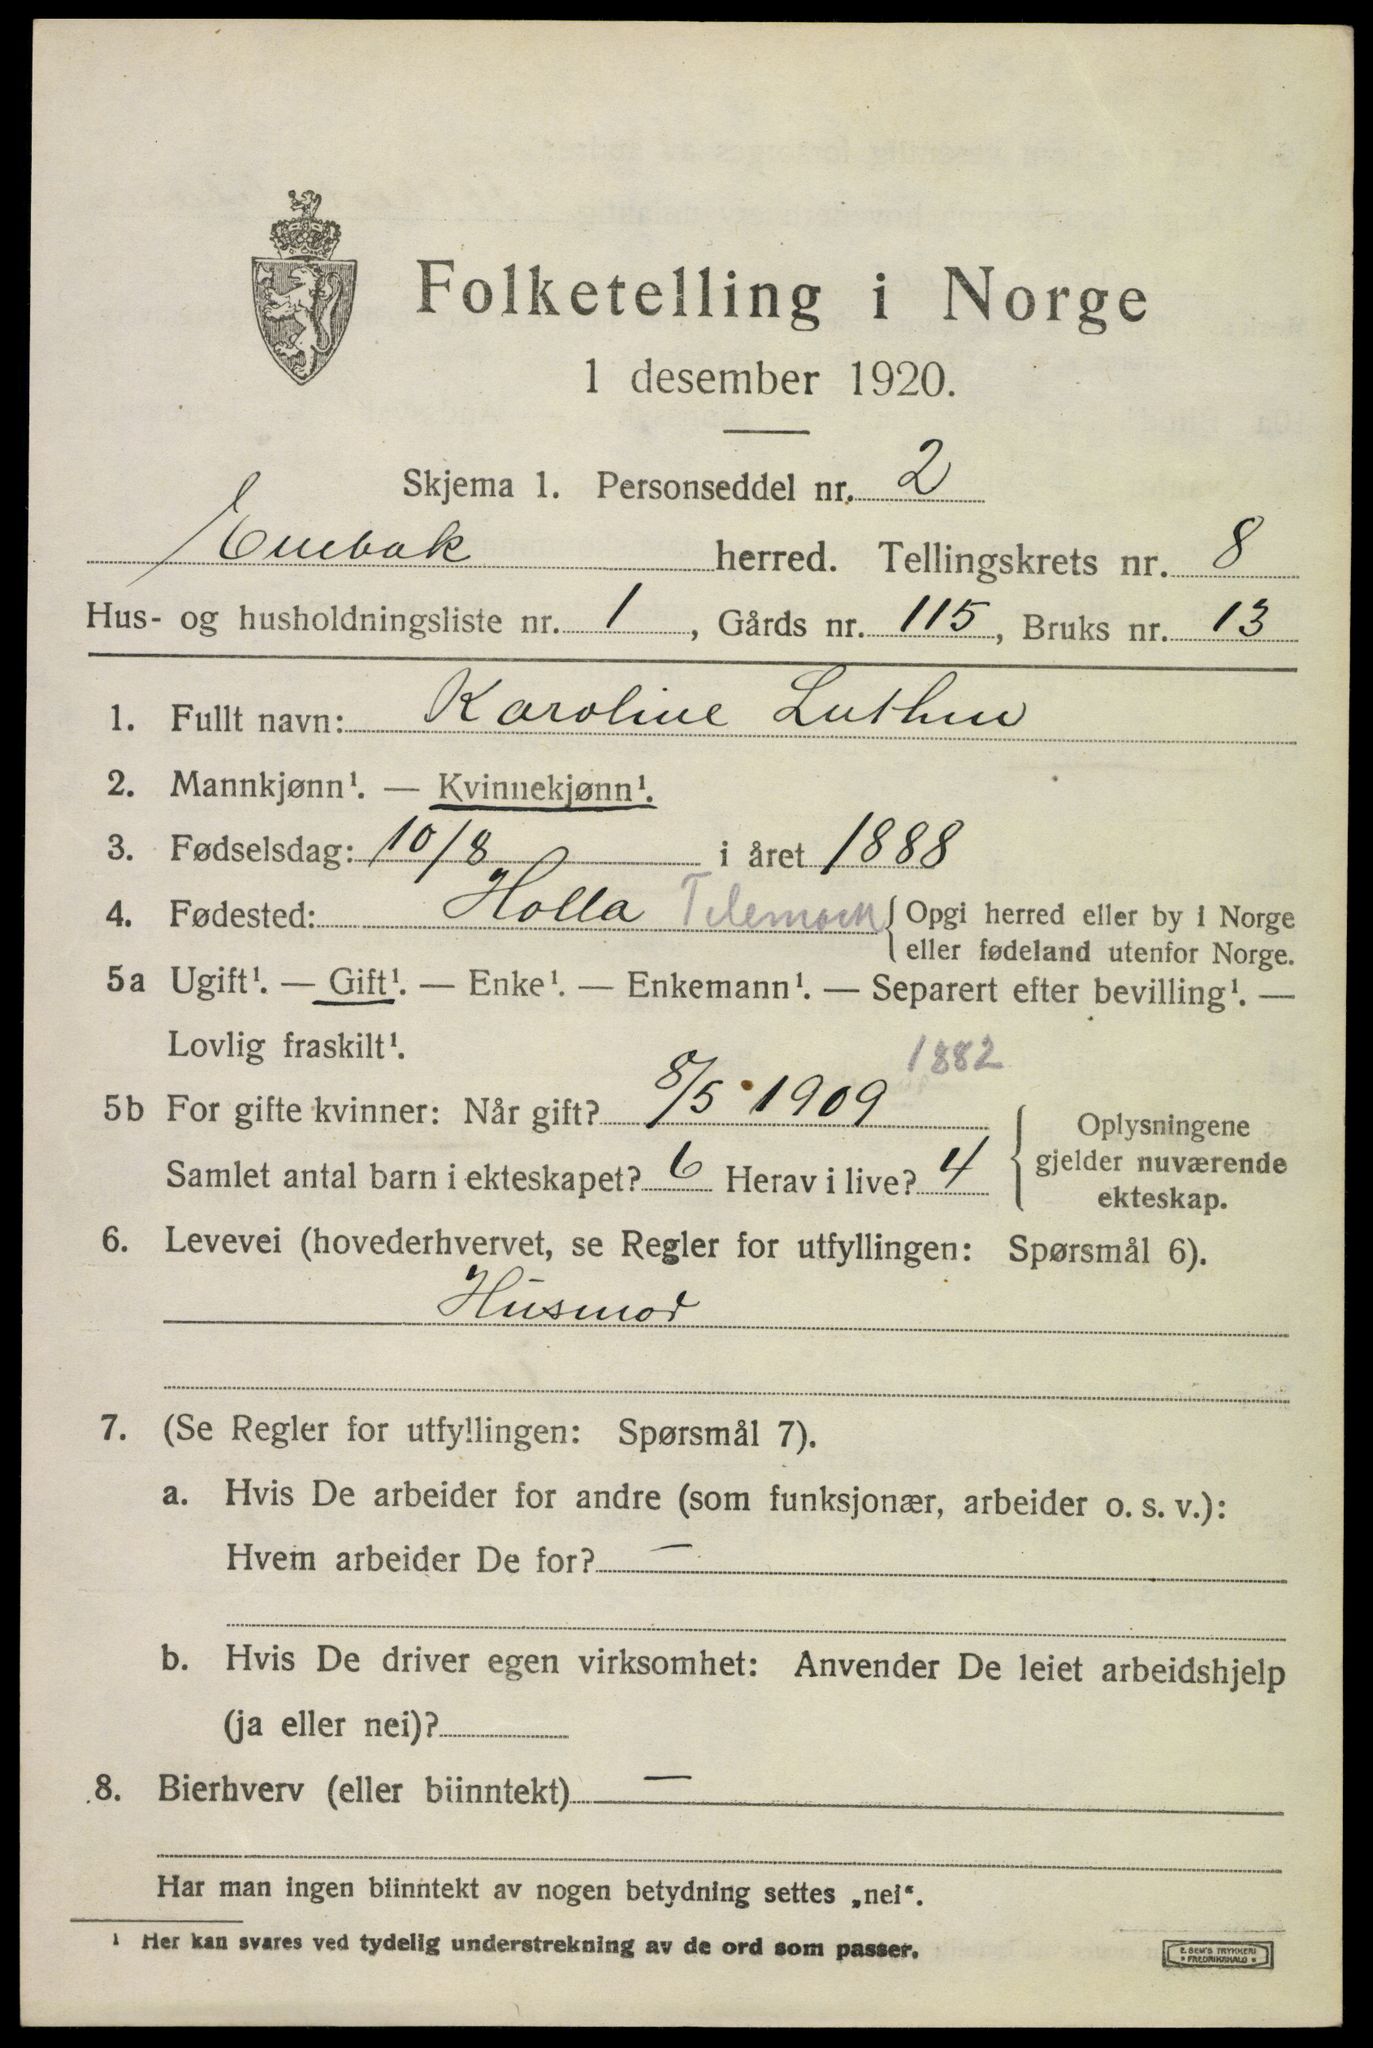 Folketelling i Norge
1 desember 1920.
Skjema 1. Personseddel nr. 2
Enebak herred. Tellingskrets nr. 8
Hus- og husholdningsliste nr. 1, Gårds nr. 115, Bruks nr. 13
1. Fullt navn: Karoline Luthen
2. Mannkjønn¹. — Kvinnekjønn¹.
3. Fødselsdag: 10/8 i året 1888
4. Fødested: Holla Telemark { Opgi herred eller by i Norge
eller fødeland utenfor Norge.
5a Ugift¹. — Gift¹. — Enke¹. — Enkemann¹. — Separert efter bevilling¹. —
Lovlig fraskilt¹.
1882
5b For gifte kvinner: Når gift? 8/5 1909
Samlet antal barn i ekteskapet? 6 Herav i live? 4
{ Oplysningene
gjelder nuværende
ekteskap.
6. Levevei (hovederhvervet, se Regler for utfyllingen: Spørsmål 6).
Husmor
7. (Se Regler for utfyllingen: Spørsmål 7).
a. Hvis De arbeider for andre (som funksjonær, arbeider o. s. v.):
Hvem arbeider De for? —
b. Hvis De driver egen virksomhet: Anvender De leiet arbeidshjelp
(ja eller nei)?
8. Bierhverv (eller biinntekt) —
Har man ingen biinntekt av nogen betydning settes „nei“.
¹ Her kan svares ved tydelig understrekning av de ord som passer.
E. SEM'S TRYKKERI
* FREDRIKSHALD *